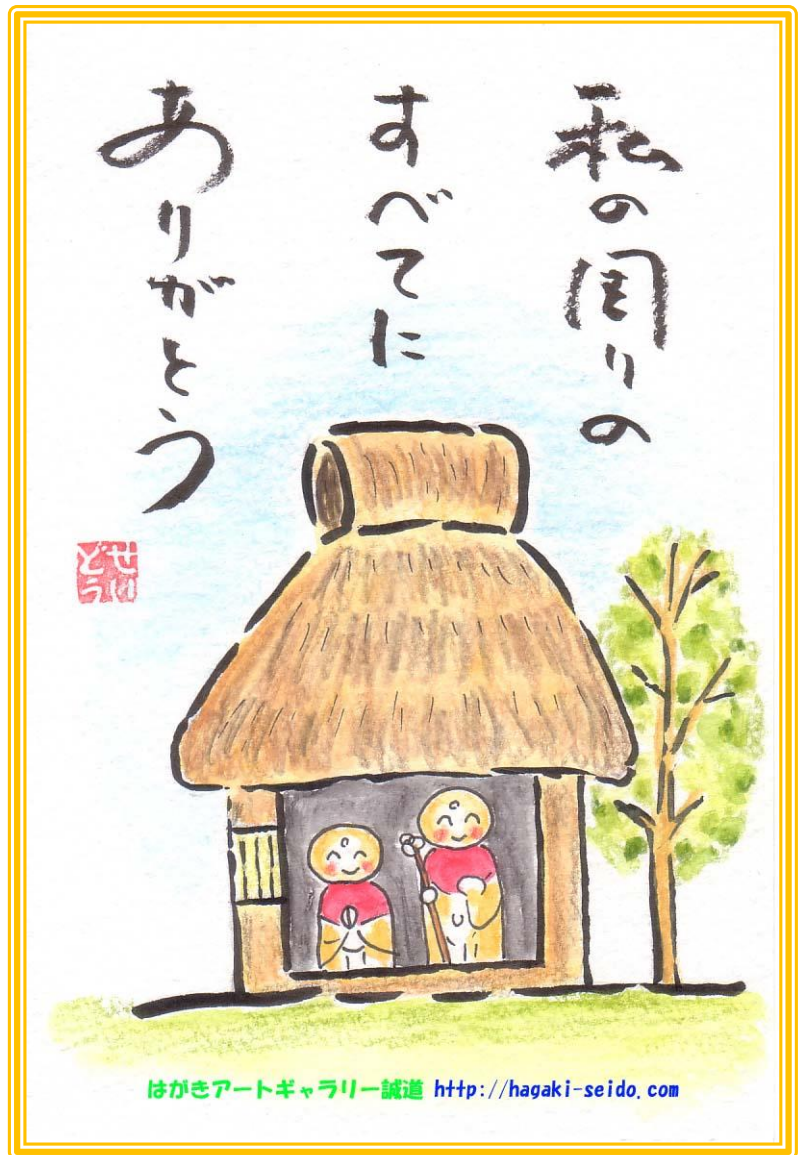 私の周りの
すべてに
ありがとう
せい
どう
はがきアートギャラリー誠道 http://hagaki-seido.com